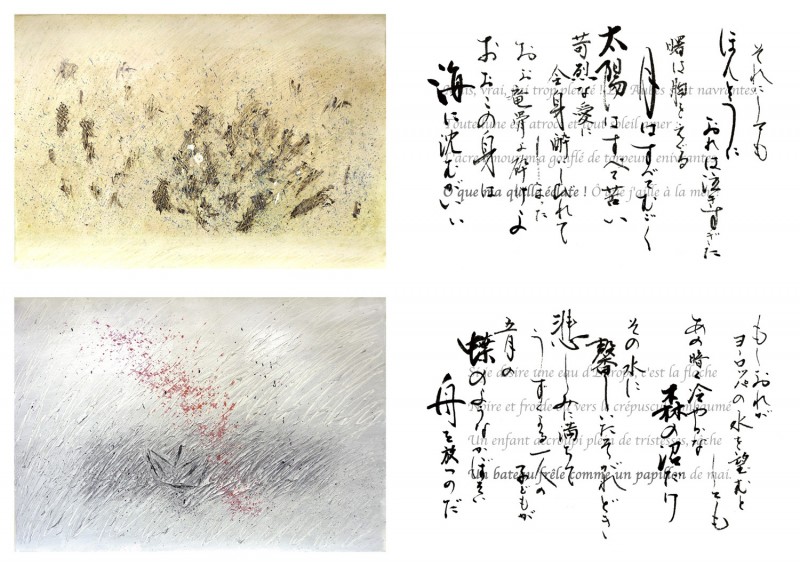 それにしても
ほんとうに
おれは泣きすぎた
曙は胸をえぐる
月はすべてむごく
太陽はすべて苦い
苛烈な愛に
全身酔いしれて
しまった
おお竜骨よ砕けよ
おおこの身は
海に沈むがいい
vrai, j'ai trop pleuré ! Les Aubes sont navrantes.
Toute lune est atroce et tout soleil amer :
L'âcre amour m'a gonflé de torpeurs enivrantes.
Ô que ma quille éclate ! Ô que j'aille à la mer
もしおれが
ヨーロッパの水を望むと
しても
あの暗く冷ややかな
森の沼だけ
その水に
馨しいたそがれどき
悲しみに満ちて
うずくまる一人の
子どもが
五月の
蝶のようなかぼそい
舟を放つのだ
Si je désire une eau d'Europe, c'est la flache
Noire et froide où vers le crépuscule embaumé
Un enfant accroupi plein de tristesses, lâche
Un bateau frêle comme un papillon de mai.